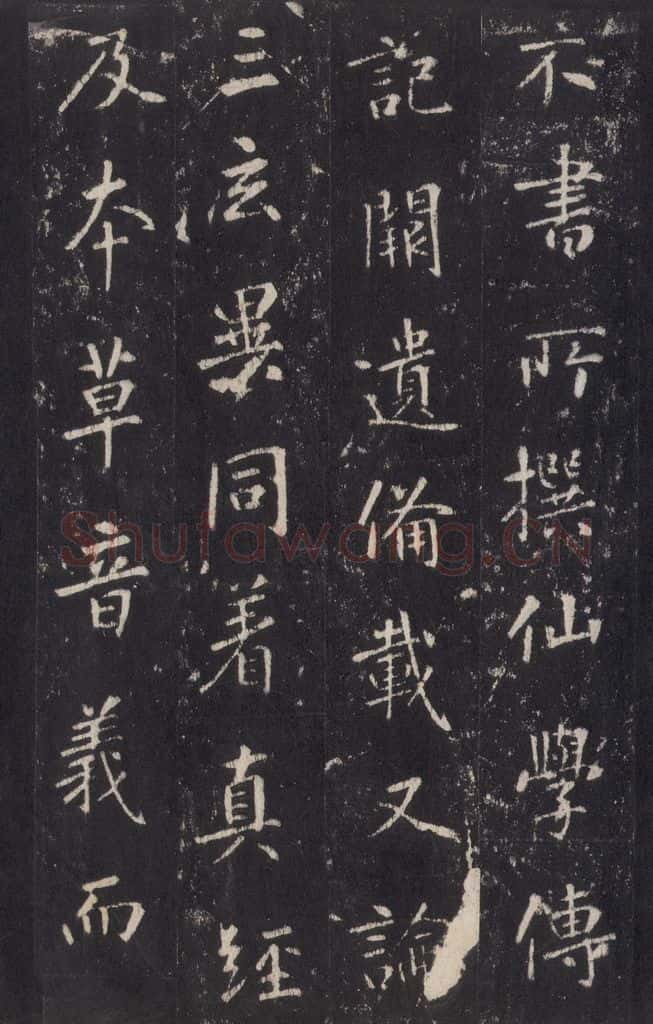 不書所撰仙學傳
記闕遺備載又論
三玄異同着真經
及本草音義而
Shufawang.CN